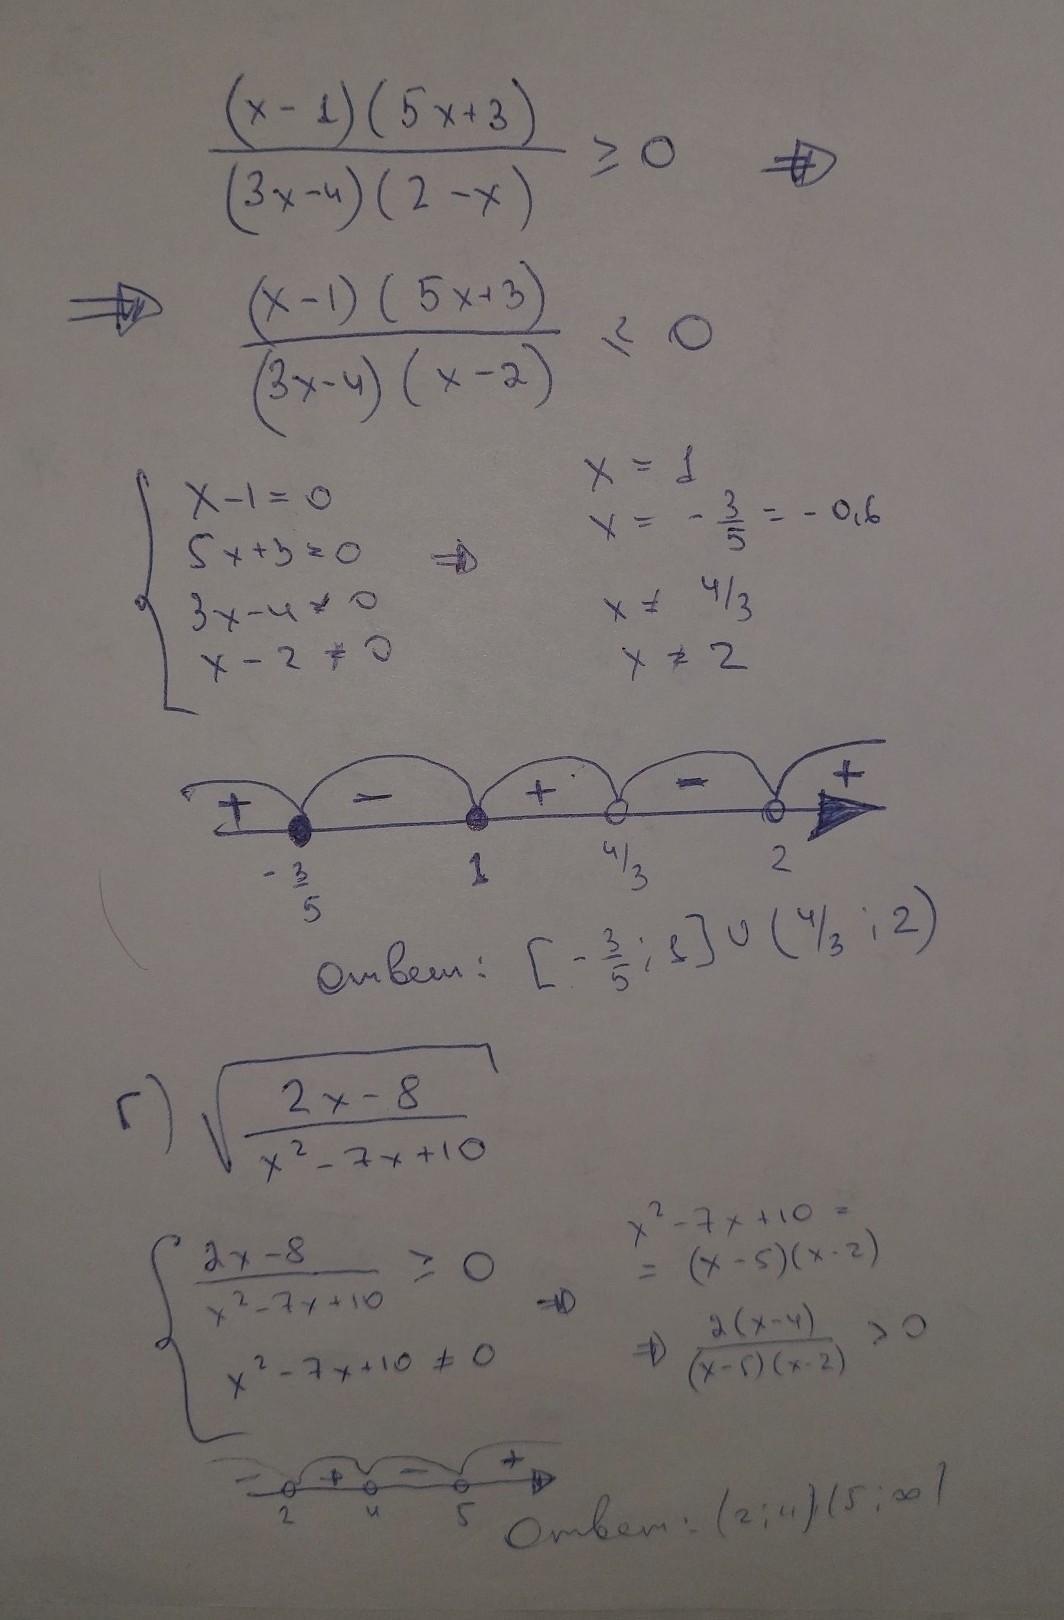 (x-1)(5x+3)
(3x-4)(2-x)
≥ 0 ⇒
⇒ (x-1)(5x+3)
(3x-4)(x-2)
≤ 0
x-1=0
5x+3=0
3x-4≠0
x-2≠0
⇒
x = 1
x = -3/5 = -0,6
x ≠ 4/3
x ≠ 2
+ - + - +
-3/5 1 4/3 2
Ответ: [-3/5; 1]∪(4/3; 2)
г) √
2x-8
x²-7x+10
2x-8
x²-7x+10
≥ 0
x²-7x+10≠0
⇒
x²-7x+10 =
= (x-5)(x-2)
⇒ 2(x-4)
(x-5)(x-2)
> 0
- + - +
2 4 5
Ответ: (2;4)(5;∞)